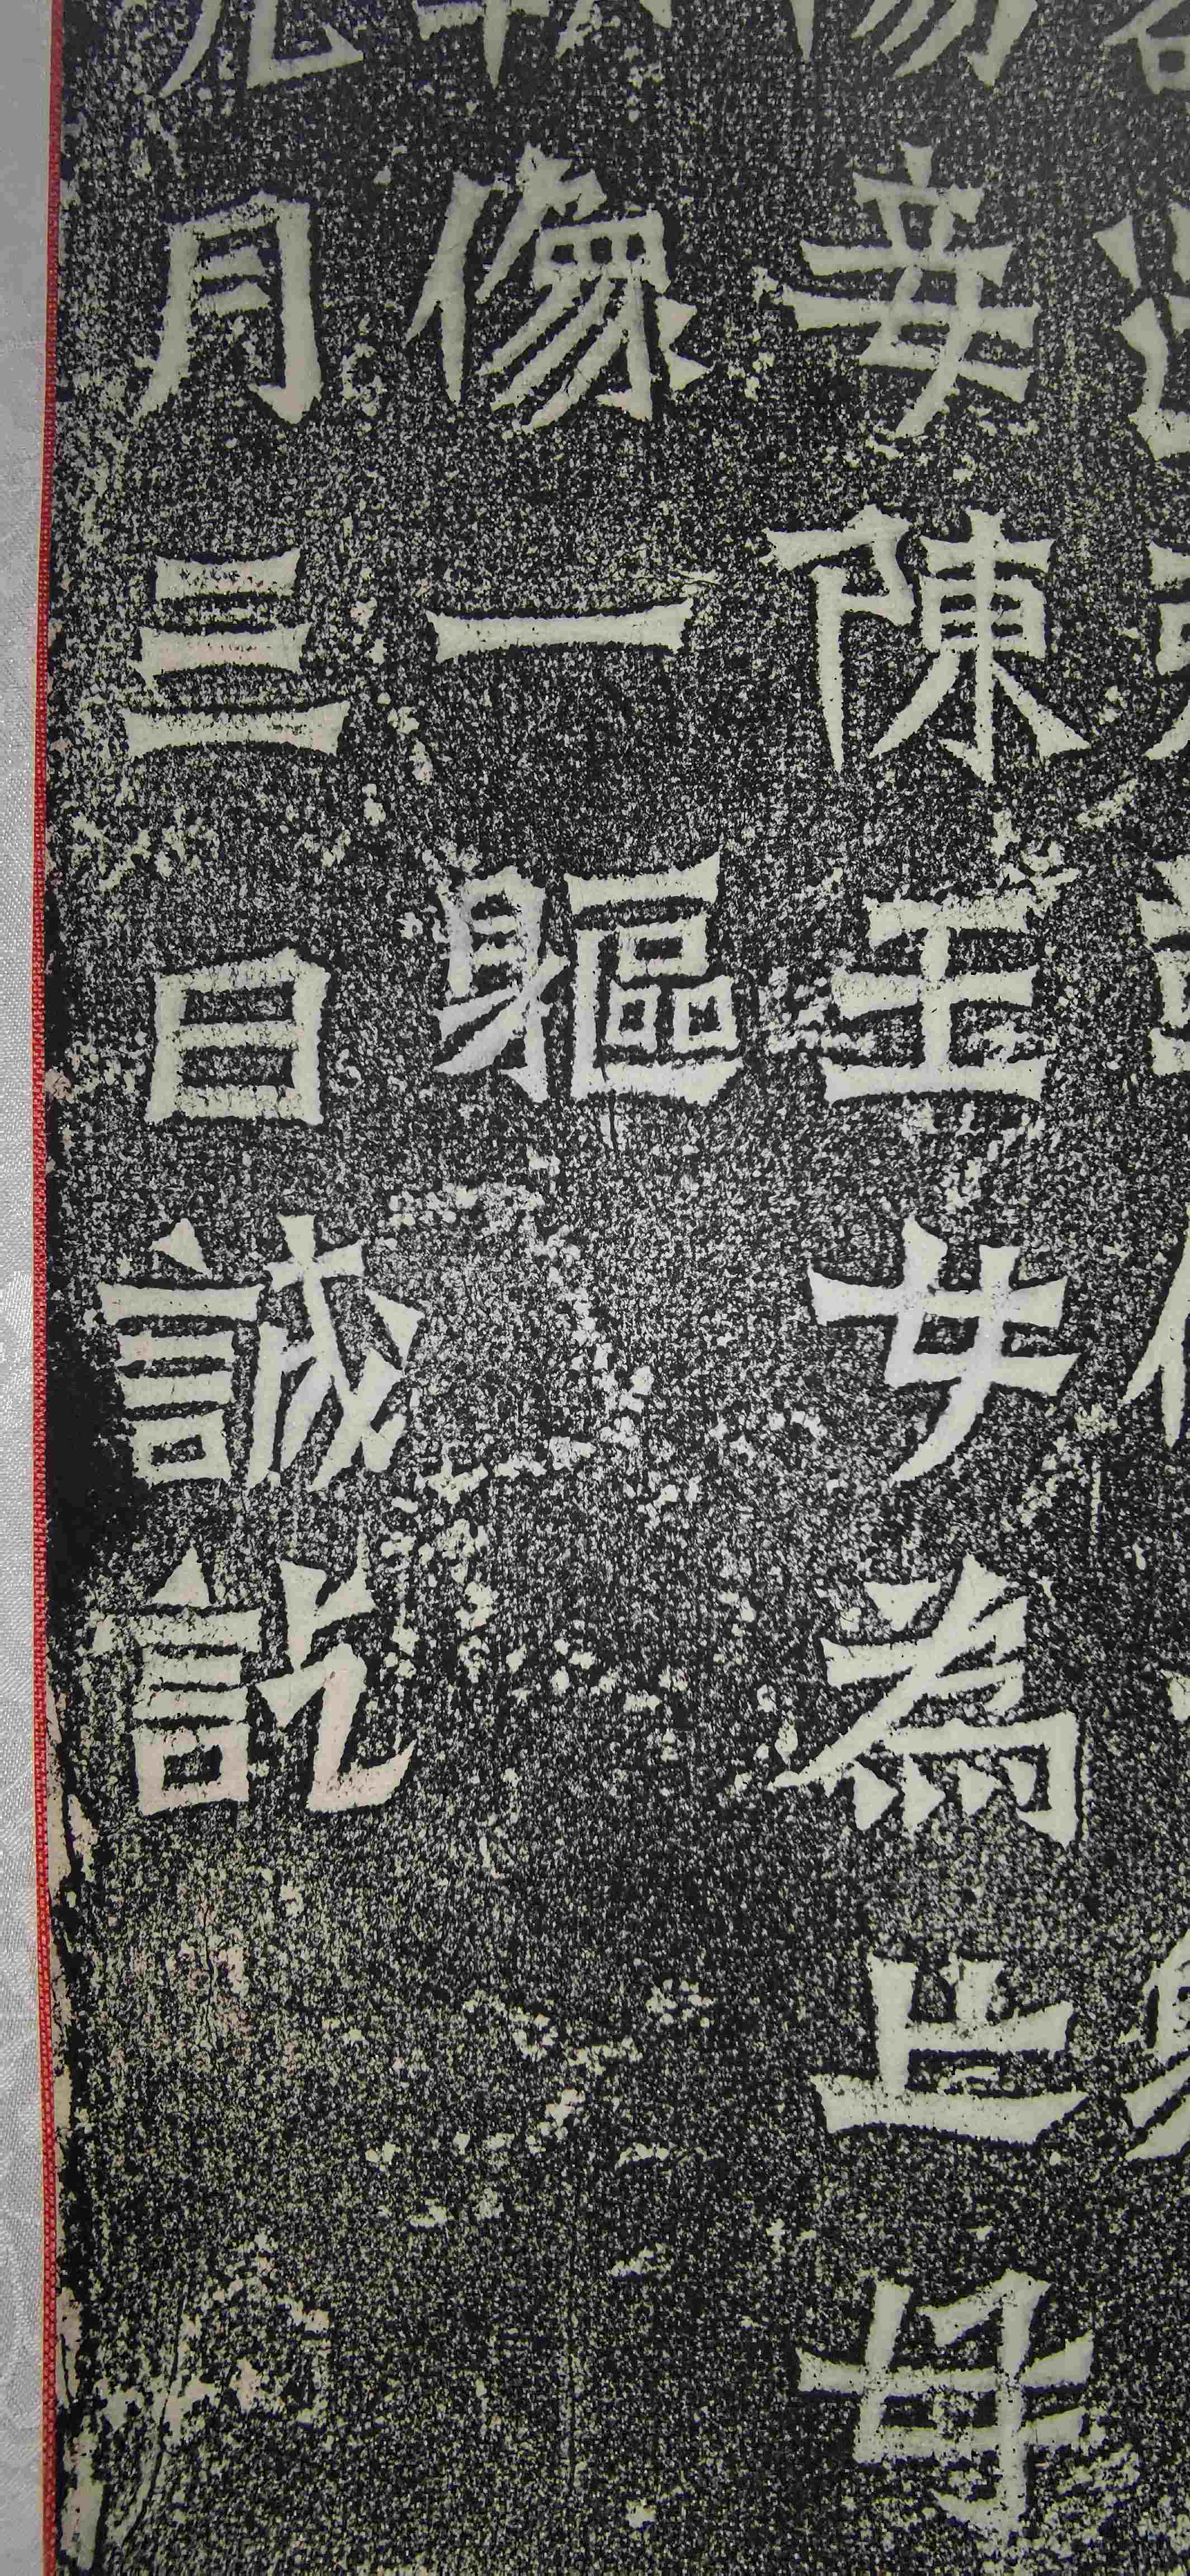 妾陳王女為亡母
像一軀
月三日誠訖